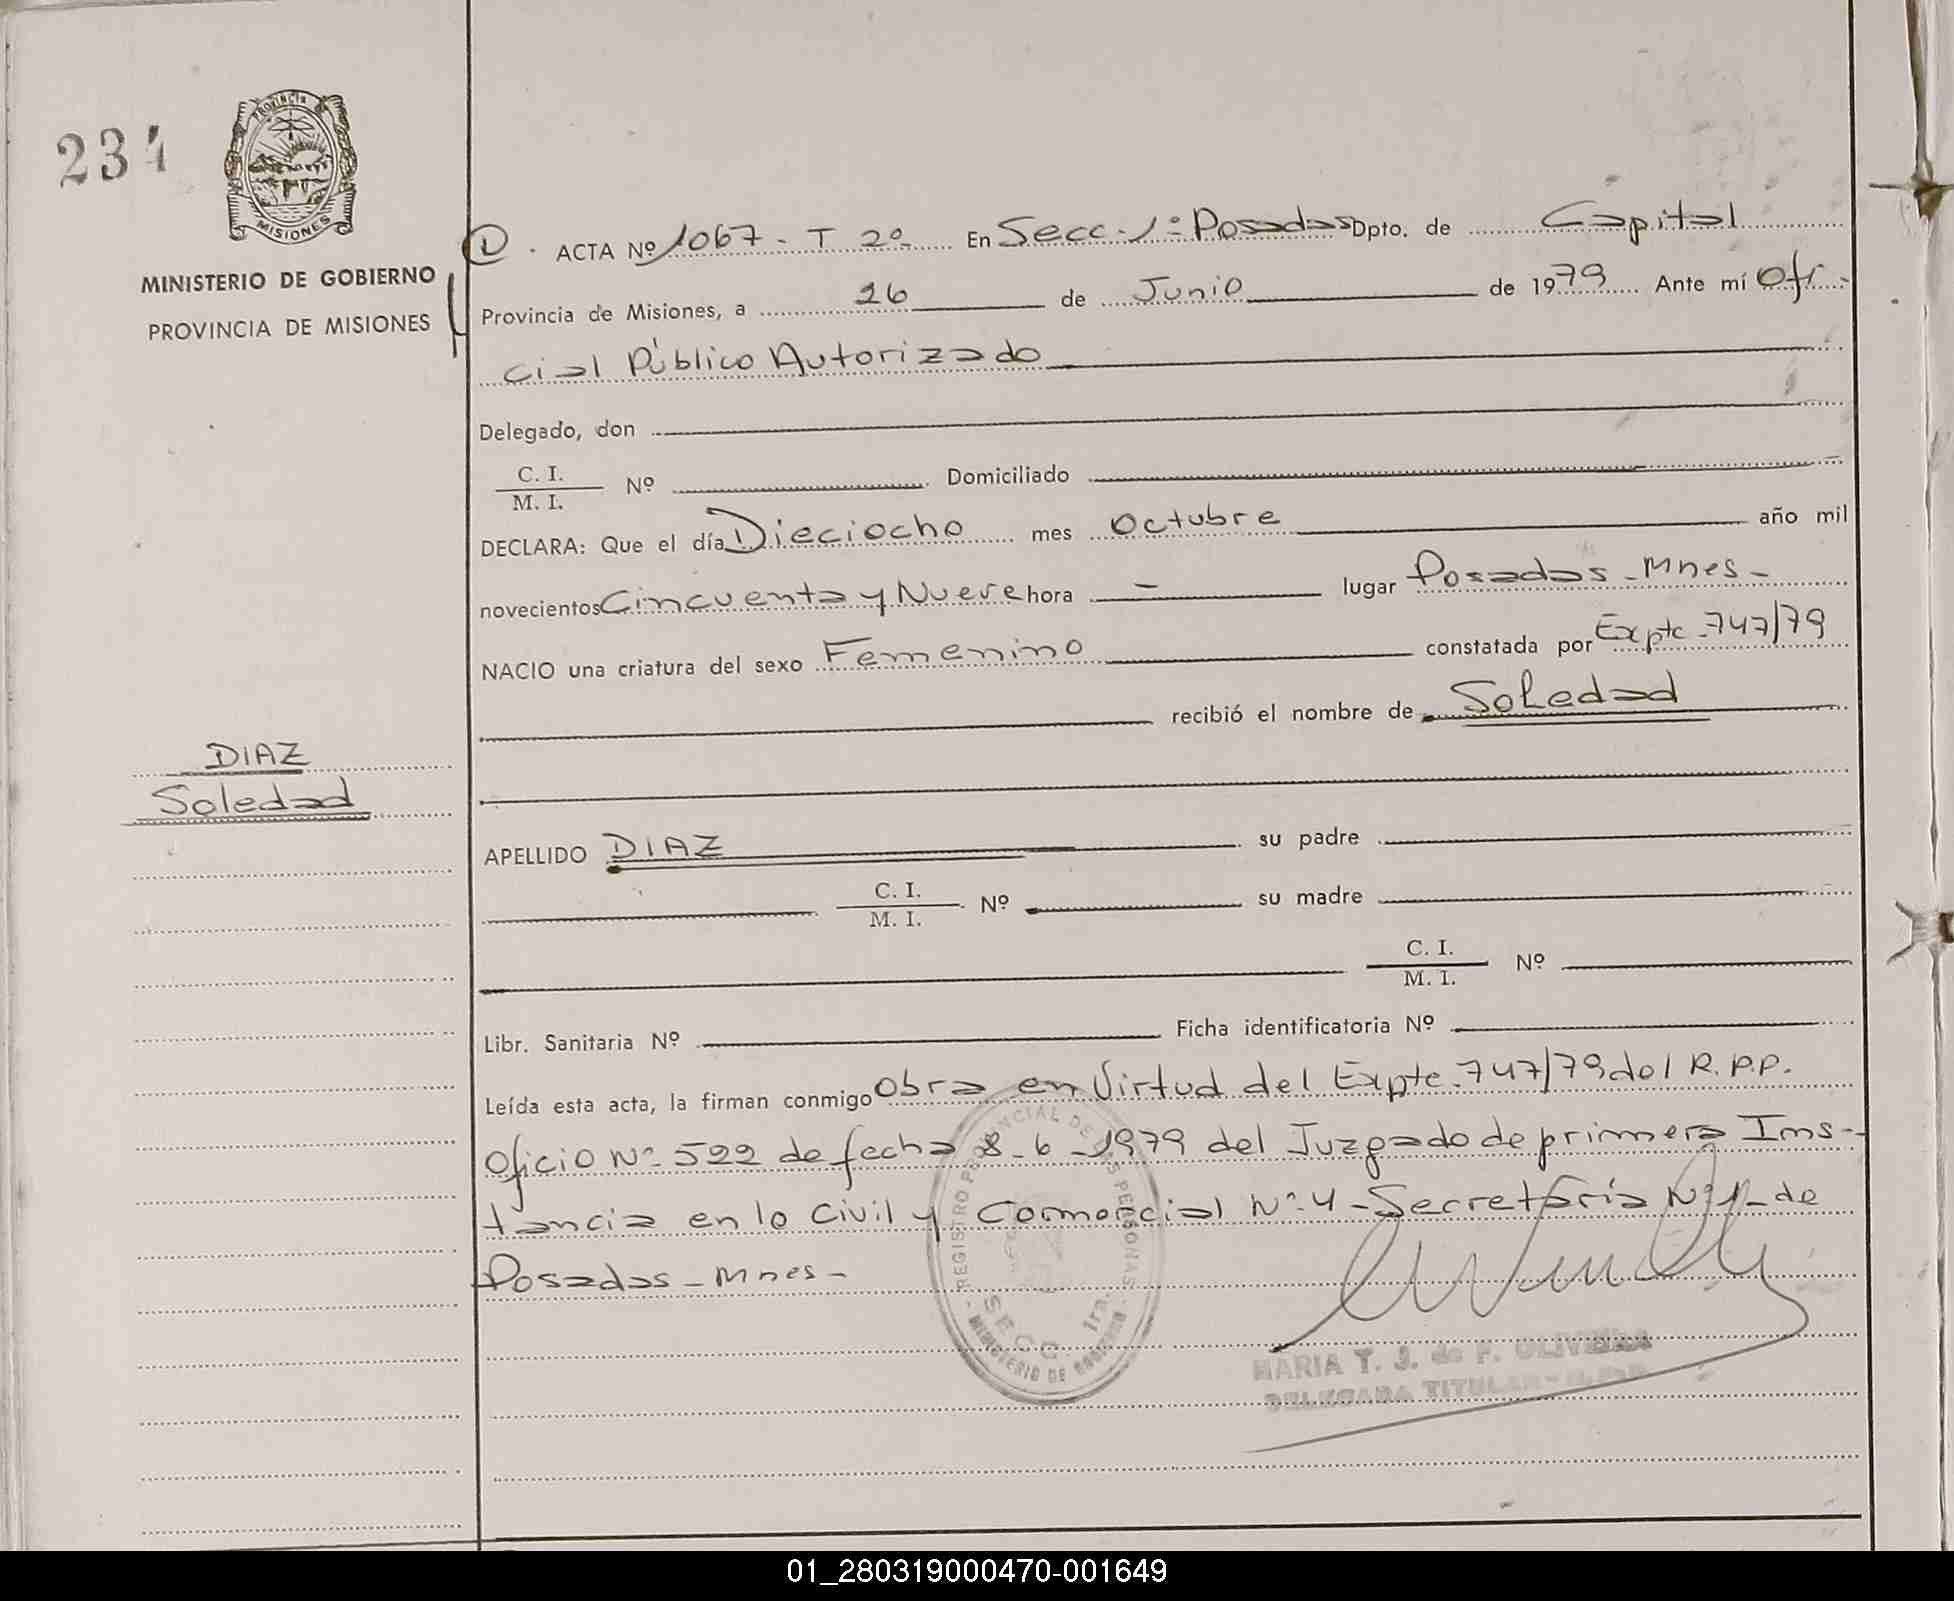 234
PROVINCIA
MISIONES
MINISTERIO DE GOBIERNO
PROVINCIA DE MISIONES
D. ACTA Nº 1067 - T 2º En Secc. 1ª Posadas Dpto. de Capital
Provincia de Misiones, a 26 de Junio de 1979 Ante mí Ofi-
cial Público Autorizado
Delegado, don
C. I.
M. I. Nº Domiciliado
DECLARA: Que el día Dieciocho mes Octubre año mil
novecientos Cincuenta y Nueve hora - lugar Posadas - Mnes -
NACIO una criatura del sexo Femenino constatada por Expte. 747/79
recibió el nombre de Soledad
DIAZ
Soledad
APELLIDO DIAZ su padre
C. I.
M. I. Nº su madre
C. I.
M. I. Nº
Libr. Sanitaria Nº Ficha identificatoria Nº
Leída esta acta, la firman conmigo Obra en Virtud del Expte. 747/79 del R.P.P.
Oficio Nº 522 de fecha 8-6-1979 del Juzgado de primera Ins-
tancia en lo Civil y Comercial Nº 4 - Secretaría Nº 1 - de
Posadas - Mnes -
REGISTRO PROVINCIAL DE LAS PERSONAS
SECC. 1ra.
MINISTERIO DE GOBIERNO
MARIA T. J. de F. OLIVEIRA
DELEGADA TITULAR
01_280319000470-001649